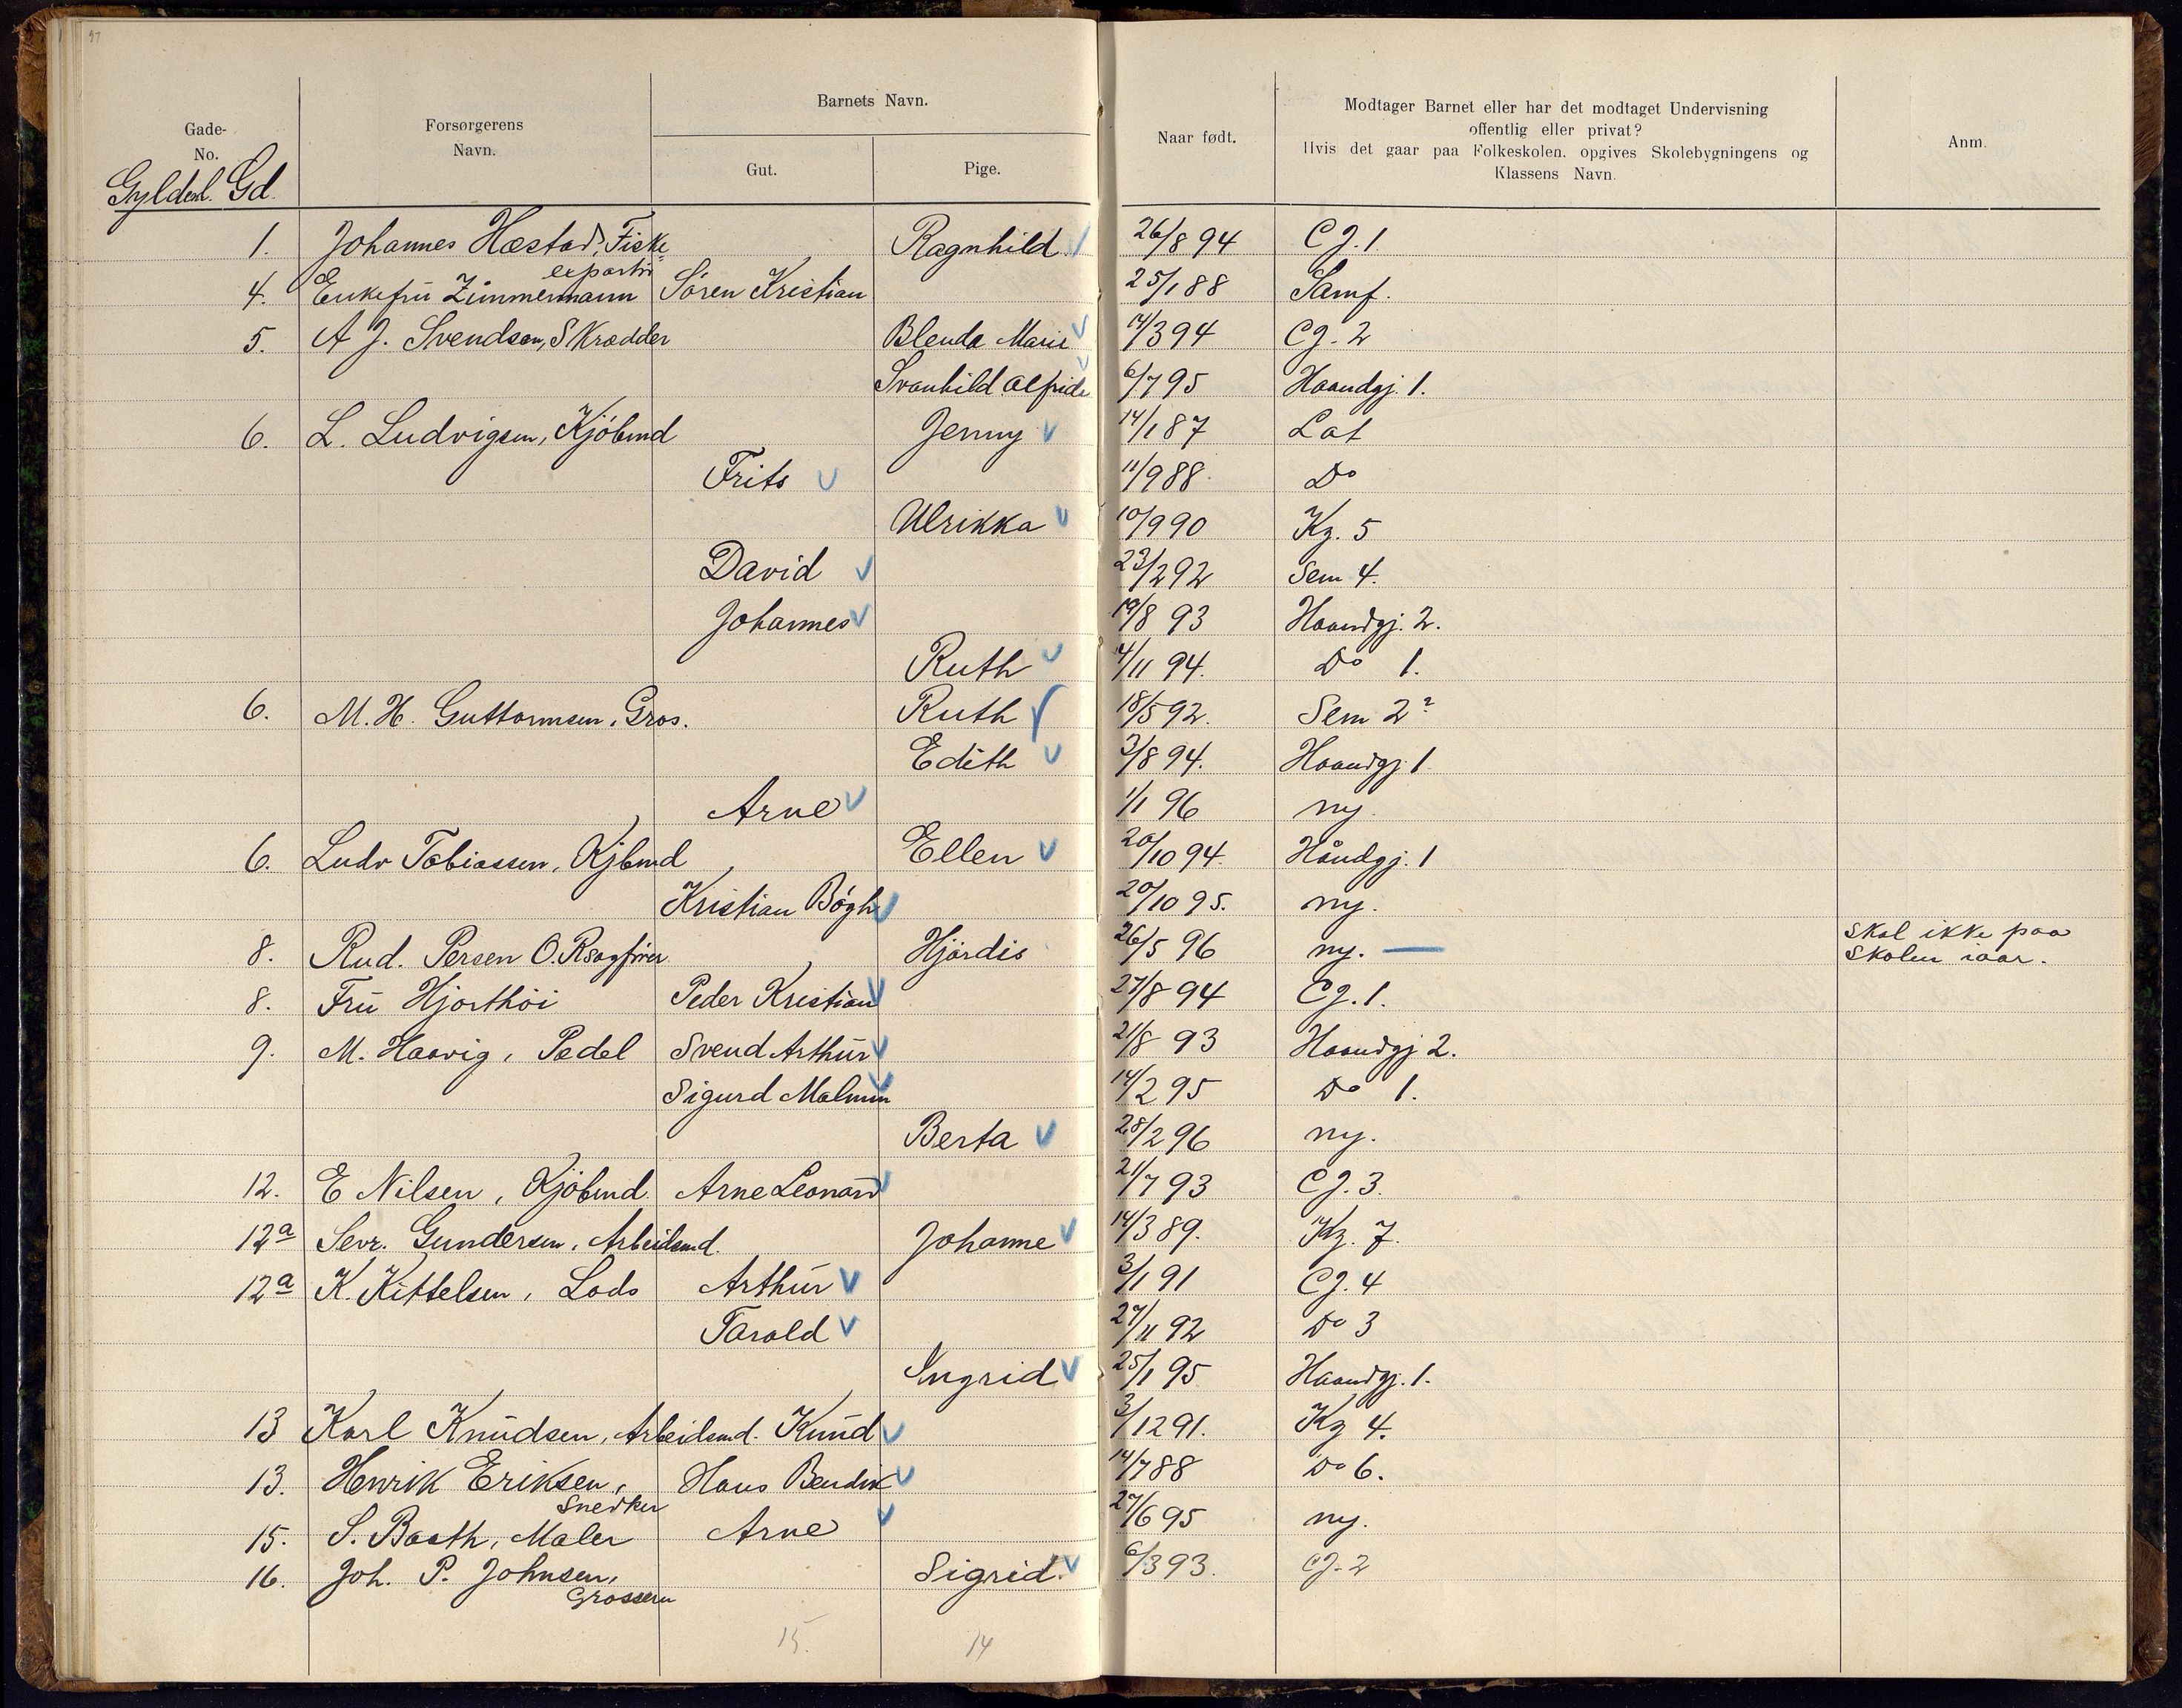 Gade-
No.
Gyldenl. Gd.
Forsørgerens
Navn.
Barnets Navn.
Gut.
Pige.
Naar født.
Modtager Barnet eller har det modtaget Undervisning
offentlig eller privat?
Hvis det gaar paa Folkeskolen, opgives Skolebygningens og
Klassens Navn.
Anm.
1. Johannes Hæstad, Fiske- Ragnhild 26/8 94 CJ. 1
exportør
4. Enkefrü Zimmermann Sören Kristian 25/1 88 Samf.
5. A J. Svendsen, Skrædder Blenda Marie 14/3 94 CJ. 2
Svanhild Alfride 6/7 95 Haandgj. 1.
6. L. Ludvigsen, Kjöbmd Jenny 14/1 87 Lat
Frits 11/9 88 Do
Ulrikka 10/9 90 Kz. 5
David 23/2 92 Sem 4.
Johannes 19/8 93 Haandgj. 2.
Ruth 4/11 94. Do 1.
6. M. H. Guttormsen, Gros. Ruth 18/5 92. Sem 2?
Edith 3/8 94. Haandgj 1
Arne 1/1 96 ny.
6. Ludv Tobiassen, Kjbmd Ellen 20/10 94. Håndgj. 1
Kristian Bögh 20/10 95. ny.
8. Rud. Persen O.Rsagfører Hjördis 26/5 96 ny. — Skal ikke paa
Skolen iaar.
8. Frü Hjorthöi Peder Kristian 27/8 94 CJ. 1.
9. M. Haavig, Pedel Svend Arthür 21/8 93 Haandgj 2.
Sigurd Malmin 14/2 95 Do 1.
Berta 28/2 96 ny.
12. E Nilsen, Kjöbmd. Arne Leonard 21/7 93 CJ. 3.
12a Sevr. Gundersen, Arbeidsmd. Johanne 14/3 89. Kz. 7.
12a K. Kittelsen, Lods Arthür 3/1 91 CJ. 4
Tarald 27/11 92 Do 3
Ingrid 25/1 95 Haandgj. 1.
13 Karl Knüdsen, Arbeidsmd. Knüd 3/12 91. Kz 4.
13. Henrik Eriksen, Hans Bendik 14/7 88 Do 6.
Snedker
15. S. Baath, Maler Arne 27/6 95 ny.
16. Joh. P. Johnsen, Sigrid. 6/3 93. CJ. 2
Grosserer
15. 14